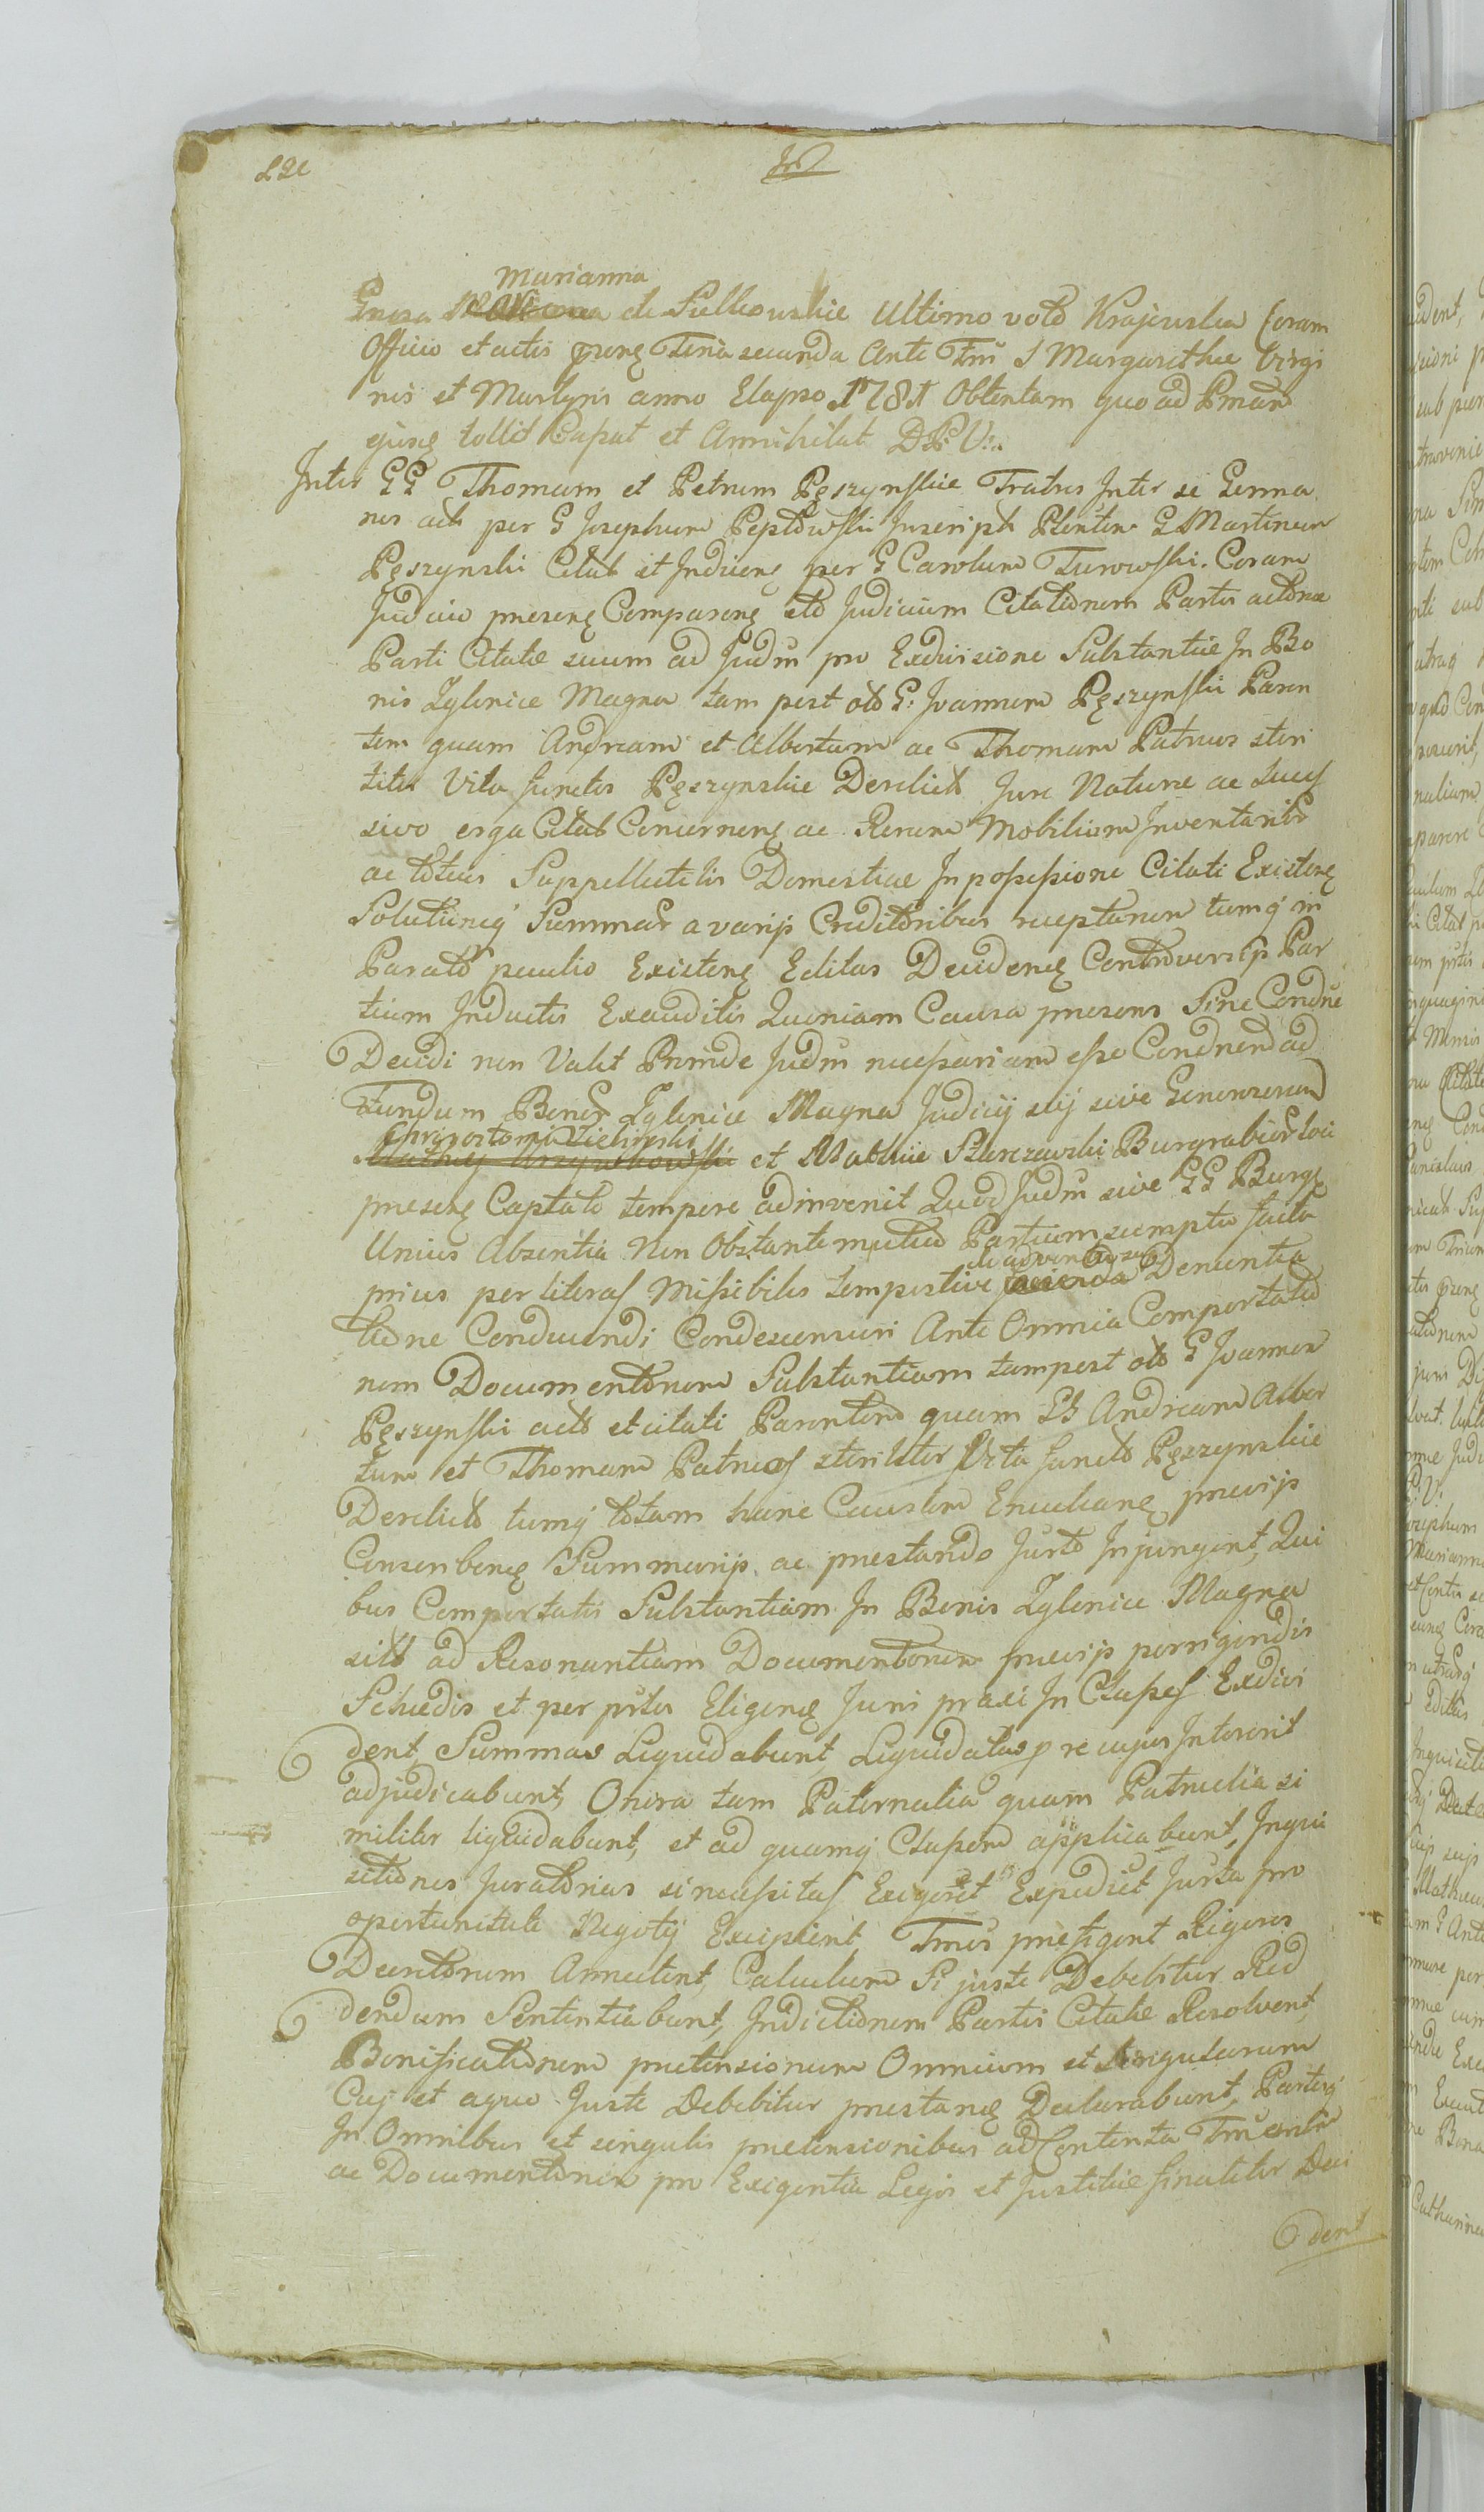 Marianna
de Sulkowskie Ultimo voto Krajewska Coram
Officio et actis Feria secunda Ante S Margarethae Virgi
nis et Martyris anno Elapso 1781 Obtentam quo ad
ejusq tollit Casat et Annihilat D: P: V:
Inter GG Thomam et Petrum Pęszynskie Fratres Inter se Germa
nos act per G Josephum Peptowski G Martinum
Pęszynski Citat et per G Carolum Turowski. Coram
Judicio presenq Comparenq Judicium Citationem Partis actorea
Parti Citatae suum ad Judm pro Exdivisione Substantiae In Bo
nis Zglenice Magna tam post G: Joannem Pęszynski Paren
tem quam Andream et Albertum ac Thomam Patruos steri
liter Vita functos Pęszynskie Derelict Jure Naturae ac
sivo erga Citat Concernenq ac Rerum Mobilium
ac totius Suppellectilis Domesticae In possessione Citati Existenq
Summar a varijs Creditoribus receptarum tumq in
Parato peculio Existenq Editas Decidenq Controversijs Par
tium Inductis Exauditis Quoniam Causa presens Sine
Decidi non Valet Proinde Judm necessarium esse ad
Fundum Bonor Zglenice Magna Judicij sui sive Generosorum
Chrisostomi Zielinski
et Mathiae Starczewski Burgrabior loci
presenq Captato tempore adinvenit Quod Judm sive GG Burg
Unius Absentia Non Obstante mutuo Partium sumptu facta
de adventu suo
prius per literas Missibiles tempestive Denuntia
tione Conducendi Condescensuri Ante Omnia Comportatio
nem Documentorum Substantiam tam post G Joannem
Pęszynski et citati Parentem quam Andream Alber
tum et Thomam Patruos steriliter Vita functos Pęszynskie
Derelict tumq totam hanc Causam
Summarijs ac prestando Injungent, Qui
bus Comportatis Substantiam In Bonis Zglenice Magna
sitt ad Resonantiam Documentorum previjs porrigendis
Schedis et per Eligenq Juri praxi In Classes Exdivi
dent, Summas Liquidabunt, Liquidatas re cujus Intererit
adjudicabunt, Onera tam Paternalia quam Patruelia si
militer liquidabunt, et ad quamq Classem applicabunt, Inqui
sitiones Juratorias si necessitas Exiget Expediet Juxta pro
oportunitate Negotij Excipient presigent Rigores
Decretorum Annectent, Calculum Si juste Debebitur Red
dendum Sententiabunt, Indictionem Partis Citatae Resolvent,
Bonificationem pretensionum Omnium et Singularum
Cui et a quo Juste Debebitur prestanq Declarabunt, Partesq
In Omnibus et singulis pretensionibus ad Contenta
ac Documentorum pro Exigentia Legis et Justitiae finaliter Deci
dent